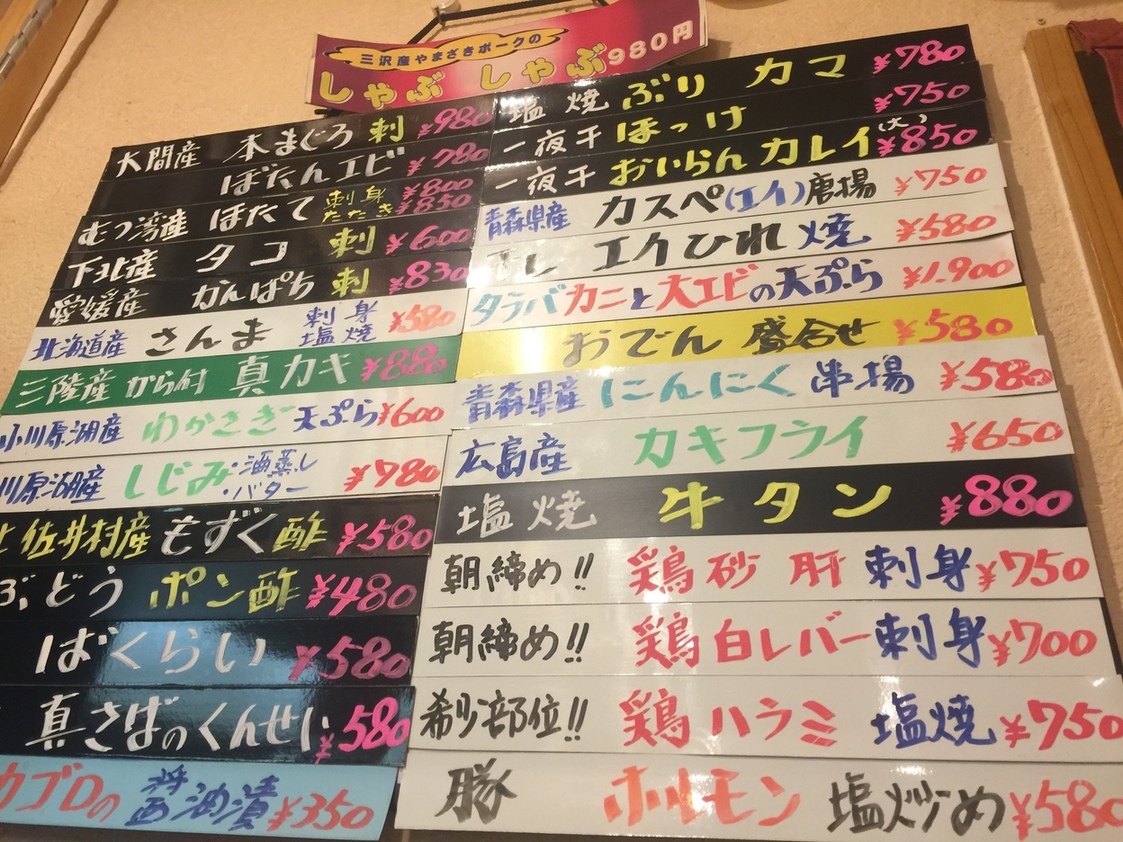 三沢産やまざきポークの
しゃぶしゃぶ980円
大間産 本まぐろ 刺 ¥980
ぼたんエビ ¥780
むつ湾産 ほたて 刺身 ¥800
たたき ¥850
下北産 タコ 刺 ¥600
愛媛産 かんぱち 刺 ¥830
北海道産 さんま 刺身 塩焼 ¥580
三陸産 から付 真カキ ¥880
小川原湖産 わかさぎ 天ぷら ¥600
川原湖産 しじみ ・酒蒸し ・バター ¥780
佐井村産 もずく酢 ¥580
ぶどう ポン酢 ¥480
ばくらい ¥580
真さばのくんせい ¥580
ゴロの 醤油漬 ¥350
塩焼 ぶり カマ ¥780
一夜干 ほっけ ¥750
一夜干 おいらん カレイ (大) ¥850
青森県産 カスペ(エイ)唐揚 ¥750
エイひれ 焼 ¥580
タラバカニと大エビの天ぷら ¥1.900
おでん 盛合せ ¥580
青森県産 にんにく 串揚 ¥580
広島産 カキフライ ¥650
塩焼 牛タン ¥880
朝締め!! 鶏砂肝 刺身 ¥750
朝締め!! 鶏白レバー 刺身 ¥700
希少部位!! 鶏ハラミ 塩焼 ¥750
豚 ホルモン 塩炒め ¥580